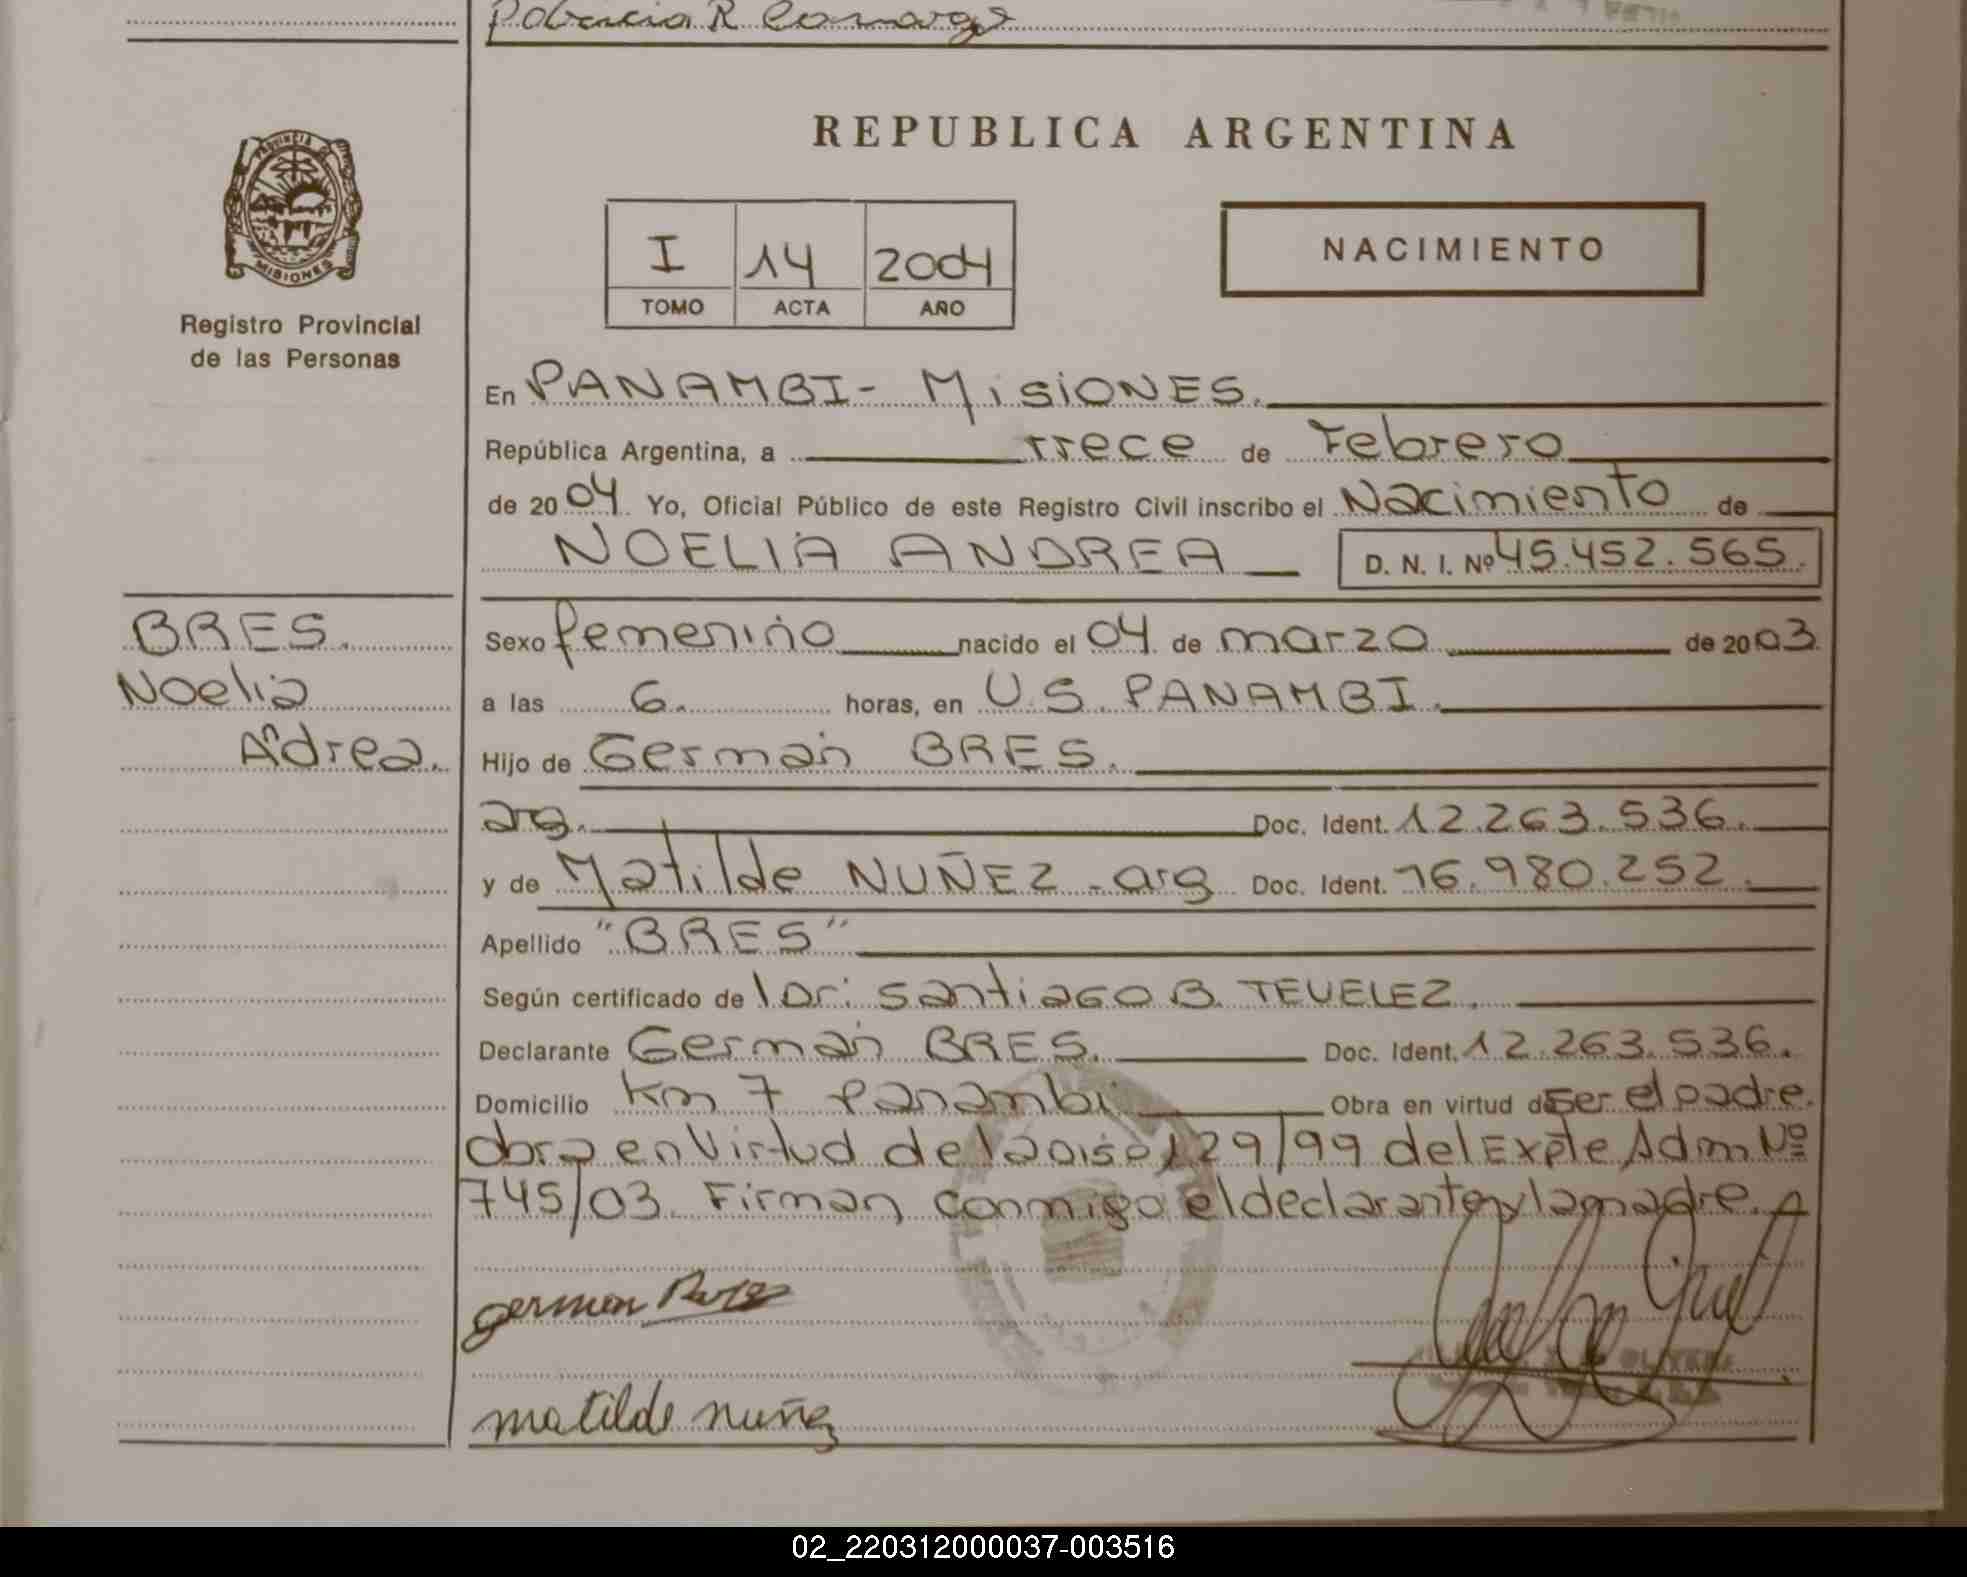 REPUBLICA ARGENTINA
PROVINCIA DE
MISIONES
Registro Provincial
de las Personas
I 14 2004
TOMO ACTA AÑO
NACIMIENTO
En PANAMBI - MISIONES.
República Argentina, a trece de Febrero
de 2004 Yo, Oficial Público de este Registro Civil inscribo el Nacimiento de
NOELIA ANDREA D. N. I. Nº 45.452.565.
BRES.
Noelia
Andrea.
Sexo femenino nacido el 04 de marzo de 2003.
a las 6. horas, en U.S. PANAMBI.
Hijo de German BRES.
arg. Doc. Ident. 12.263.536.
y de Matilde NUÑEZ - arg Doc. Ident. 16.980.252.
Apellido "BRES"
Según certificado de Dr. Santiago B. TEVELEZ.
Declarante German BRES. Doc. Ident. 12.263.536.
Domicilio Km 7 Panambi Obra en virtud de ser el padre.
Obra en Virtud de la Dispo 129/99 del Expte Adm Nº
745/03. Firman conmigo el declarante y la madre.
german Bres
matilde nuñez
02_220312000037-003516